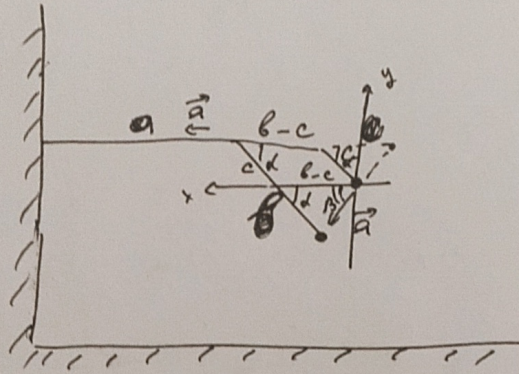 y
a⃗
b-c
c
α
c
b-c
x
α
β
a⃗